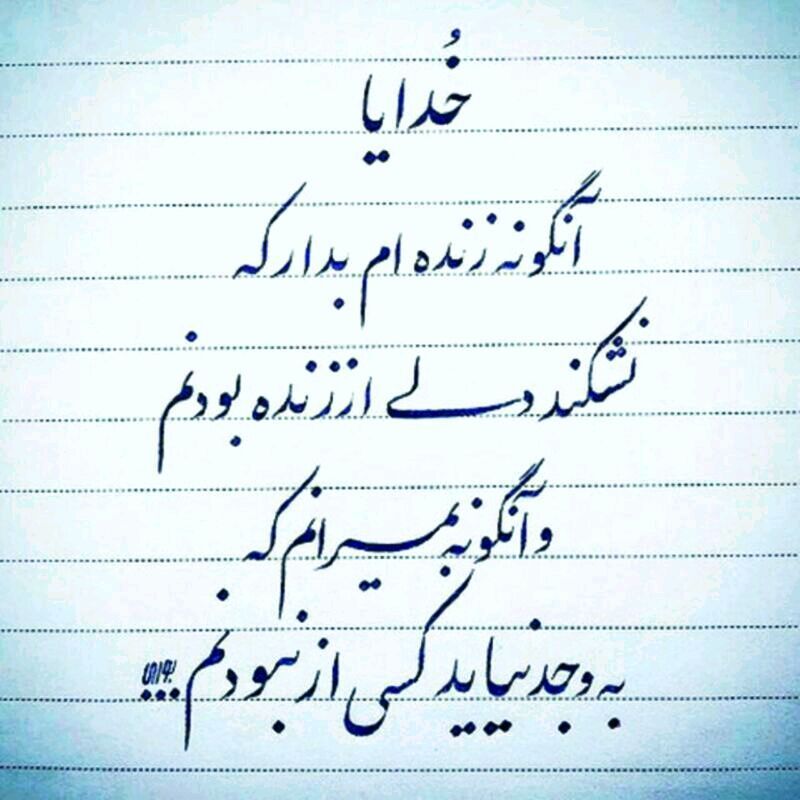 خُدایا
آنگونه زنده ام بدار که
نشکند دلے از زنده بودنم
و آنگونه بمیرانم که
به وجد نیاید کسی از نبودنم